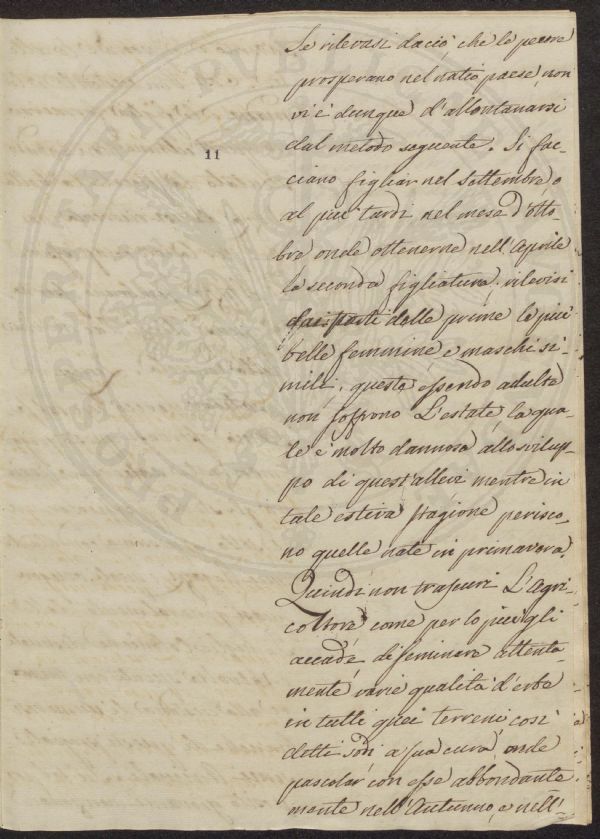 Se rilevasi daciò, che le pecore
prosperano nel natio paese, non
vi è dunque d'allontanarsi
dal metodo seguente. Si fac-
11
ciano figliar nel Settembre o
al più tardi nel mese d'otto-
bre onde ottenerne nell'Aprile
la seconda figliatura. rilevisi
dai parti delle prime le più
belle femmine e maschi si-
mili, queste essendo adulte
non soffrono L'estate, la qua-
le è molto dannosa allo svilup-
po di quest'allevi mentre in
tale estiva stagione perisco-
no quelle nate in primavera.
Quindi non trascuri L'Agri-
coltore come per lo più gli
accade, di seminare attenta-
mente varie qualità d'erbe
in tutti quei terreni così
detti sodi a sua cura, onde
pascolar con esse abbondante
mente nell'Autunno, e nell'